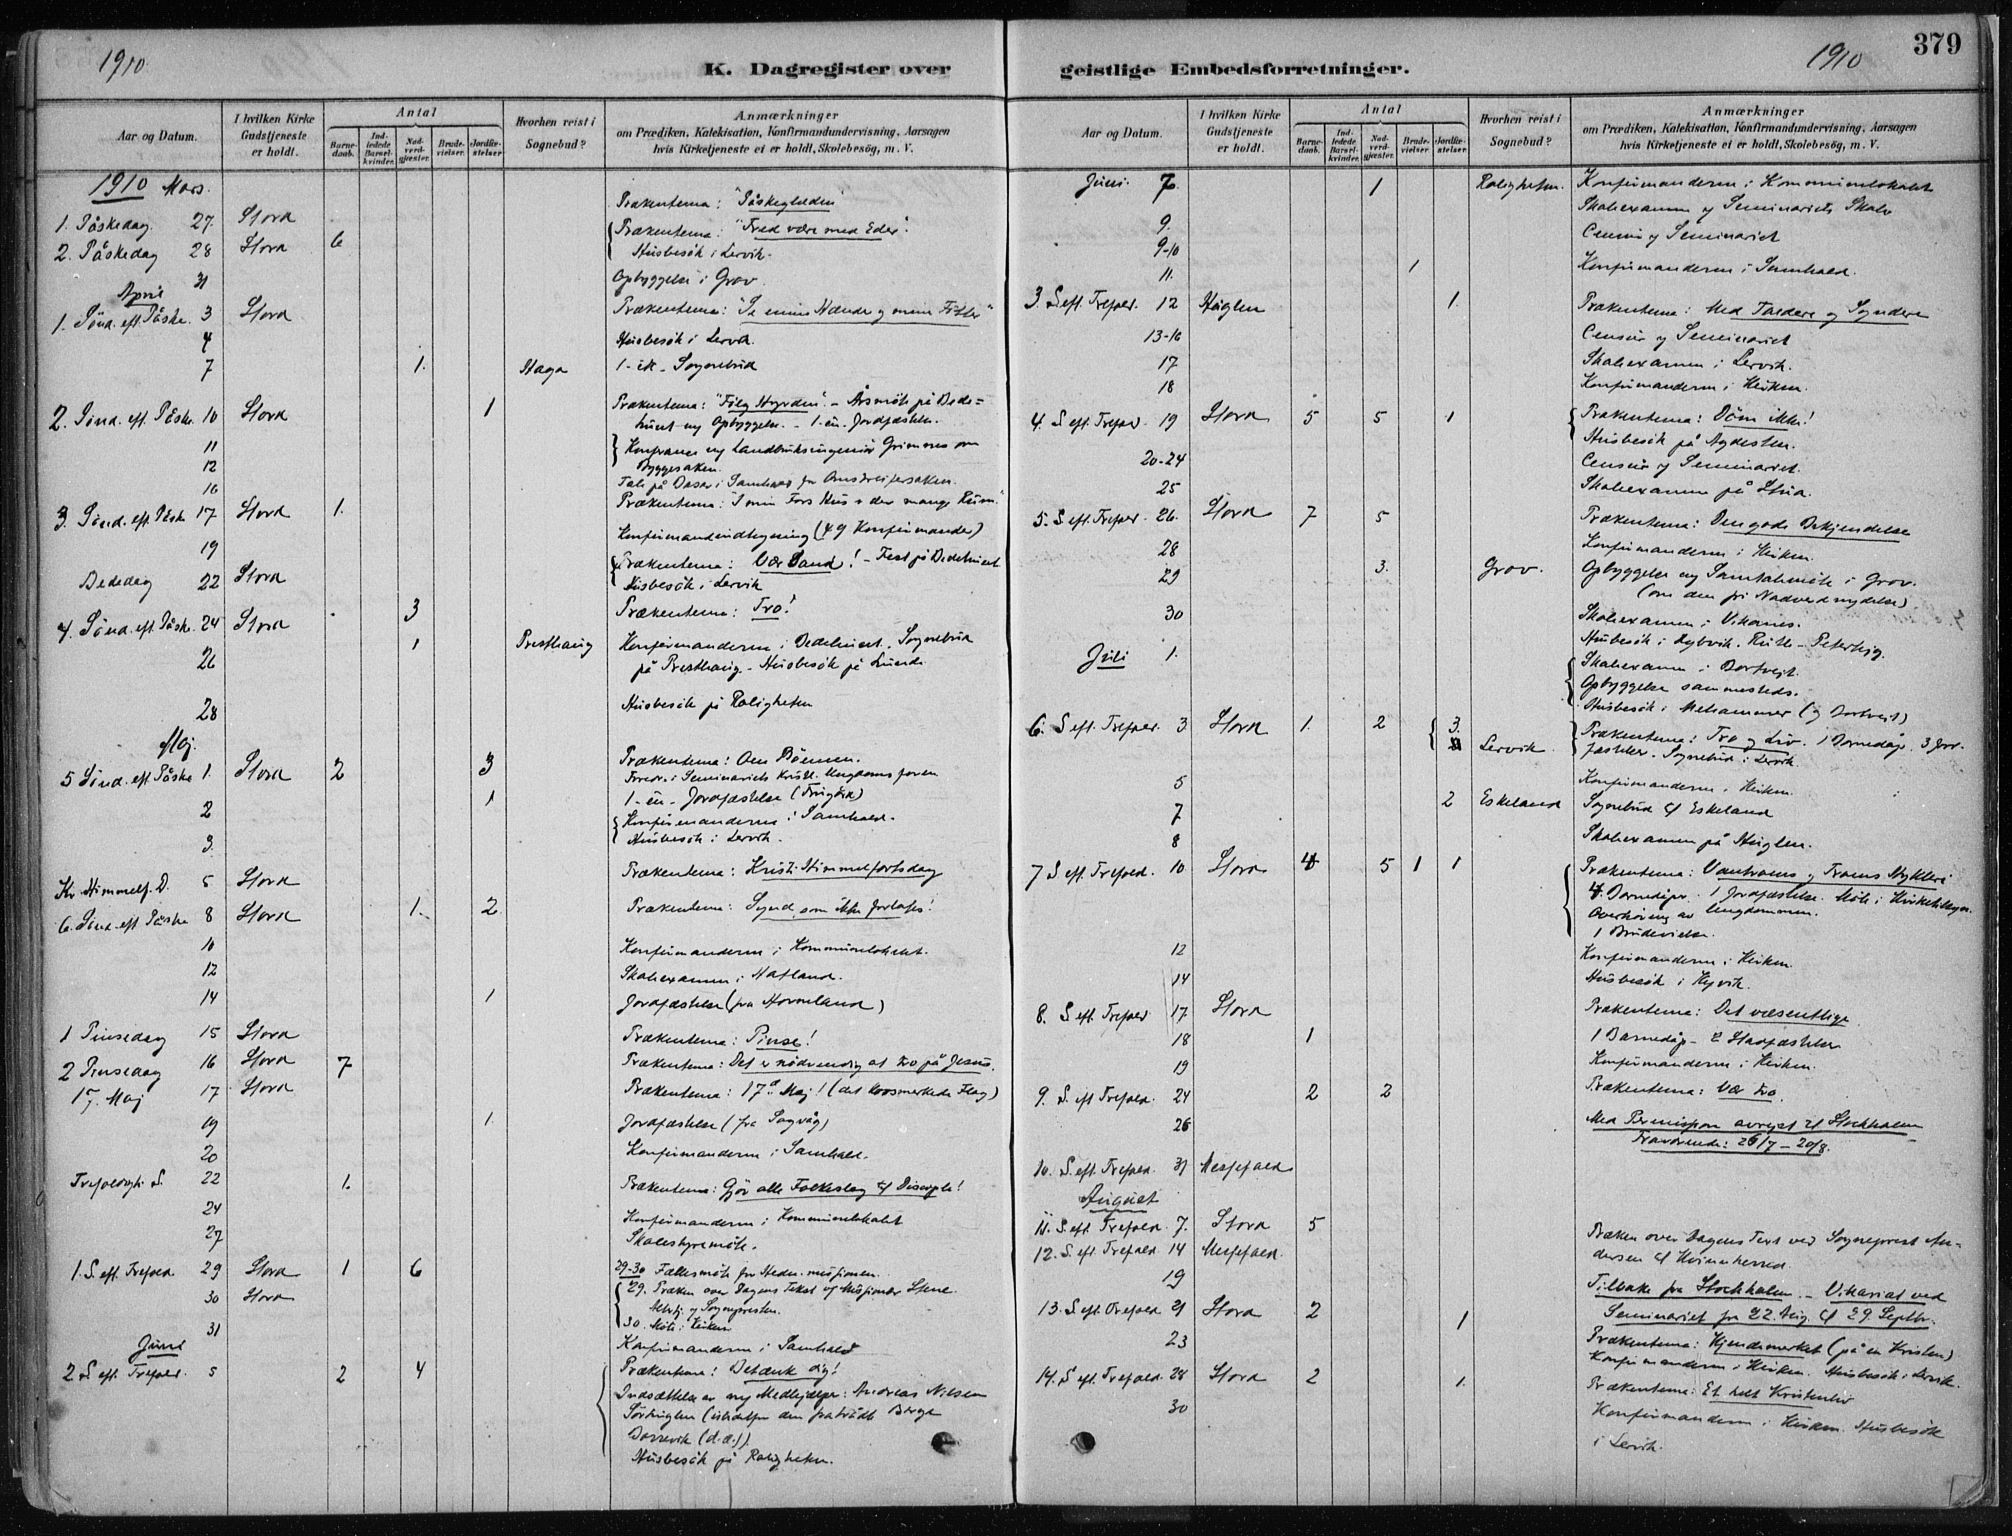 1910
K. Dagregister over
geistlige Embedsforretninger.
1910
379
Aar og Datum.
I hvilken Kirke Gudstjeneste er holdt.
Antal
Barnedaab.
Indledede Barselkvinder.
Nadverdgjæster.
Brudevielser.
Jordfæstelser
Hvorhen reist i Sognebud?
Anmærkninger
om Prædiken, Katekisation, Konfirmandundervisning, Aarsagen
hvis Kirketjeneste ei er holdt, Skolebesøg, m. V.
1910 Mars.
1. Påskedag 27. Stord Prækentema: "Påskeglæden"
2. Påskedag 28 Stord 6 Prækentema: "Fred være med Eder".
Husbesök i Lervik.
31 Opbyggelse i Grov.
April
1. Sönd. eft. Påske. 3 Stord Prækentema: "Se mine Hænder og mine Fötter"
4 Husbesök i Lervik.
7 1. Haga 1 - et - Sognebud
2. Sönd. eft. Påske 10 Stord 1 Prækentema: "Fölg Hyrden". - Årsmöte på Bede=
huset og Opbyggelse. - 1 - en - Jordfæstelse.
11 Konferance og Landbruksingeniör Grimnes om
12 Byggesaken.
16 Tale på Basar i Samhold for
3. Sönd. eft. Påske 17 Stord 1. Prækentema: "I min Fars Hus er der mange Rum".
19 Konfirmandindtegning (49 Konfirmander)
Bededag 22 Stord Prækentema: Vær Sand! - Fest på Bedehuset
Husbesök i Lervik
4. Sönd. eft. Påske. 24 Stord 3 Prækentema: Tro!
26 1 Presthaug Konfirmanderne i Bedehuset. Sognebud
på Presthaug - Husbesök på Lunde.
28 Husbesök på Roligheten
Maj.
5 Sönd. eft. Påske 1. Stord 2 3 Prækentema: Om Bönnen.
Foredr. i Seminariets Kristl. Ungdomsforen
2 1 1 - en - Jordfæstelse
3. Konfirmanderne i Samhold.
Husbesök i Lervik.
Kr. Himmelf. D. 5 Stord Prækentema: Kristi Himmelfartsdag
6. Sönd. eft Påske 8 Stord 1. 2 Prækentema: Synd, som ikke forlates!
10 Konfirmanderne i Kommunelokalet.
12 Skoleexamen i Hatland.
14 1 Jordfæstelse (fra Hovneland)
1 Pinsedag 15 Stord Prækentema: Pinse!
2 Pinsedag 16 Stord 7 Prækentema: Det er nödvendig at tro på Jesus.
17. Maj 17 Stord Prækentema: 17de Maj! (det korsmerkede Flag)
19 1. Jordfæstelse (fra Sagvåg)
20 Konfirmanderne i Samhold.
Trefoldigh. S. 22 1. Prækentema: Gjör alle Folkeslag til Disciple!
24 Konfirmanderne i Kommunelokalet
27 Skolestyremöte.
1. S. eft. Trefold. 29 Stord 1 6 29-30 Fællesmöte for Hedn. missionen.
30 Stord 29. Præken over Dagens Tekst af Missionær Stene.
Altertj. af Sognepresten.
30. Möte i Kirken
31 Konfirmanderne i Samhold
Juni
2. S. eft. Trefold. 5 2 4 Prækentema: Betænk dig!
Indsættelse av ny Medhjælper: Andreas Nilsen
Sörhuglen (istedetfor den fratrådte Börge
Husbesök på Roligheten.
Aar og Datum.
I hvilken Kirke Gudstjeneste er holdt.
Antal
Barnedaab.
Indledede Barselkvinder.
Nadverdgjæster.
Brudevielser.
Jordfæstelser
Hvorhen reist i Sognebud?
Anmærkninger
om Prædiken, Katekisation, Konfirmandundervisning, Aarsagen
hvis Kirketjeneste ei er holdt, Skolebesøg, m. V.
Juni. 7. 1 Roligheten. Konfirmanderne i Kommunelokalet
9. Skoleexamen og Seminariets Skole
9-10 Censur og Seminariet
11. 1 Konfirmanderne i Samhold.
3. S. eft. Trefold. 12 Huglen 1. Prækentema: Med Toldere og Syndere
13-16 Censur og Seminariet
17 Skoleexamen i Lervik.
18 Konfirmanderne i Kirken.
4. S. eft. Trefold. 19 Stord 5 5 1 Prækentema: Döm ikke!
Husbesök på Agdesten.
20-24 Censur og Seminariet.
25 Skoleexamen på
5. S. eft. Trefold. 26. Stord 7 5 Prækentema: Den gode Bekjendelse
28 Konfirmanderne i Kirken.
29 3. Grov. Opbyggelse og Samtalemöte i Grov.
(om den fri Nadverdnydelse).
30 Skoleexamen i Vikanes.
Husbesök i
Juli 1. Skoleexamen i Dortveit.
Opbyggelse sammesteds.
Husbesök i Mehammer (og Dortveit)
6. S. eft. Trefold. 3 Stord 1. 2 3. Lervik Prækentema: Tro og Liv. 1 Barnedåp. 3 Jor-
fæstelser. Sognebud i Lervik.
5 Konfirmanderne i Kirken.
7 2 Eskeland Sognebud til Eskeland
8 Skoleexamen på Huglen.
7 S. eft. Trefold. 10 Stord 4 5 1 1 Prækentema: Vantroens og Troens Nykler
4 Barnedåper. 1 Jordfæstelse. Möte i Kirketilsyn.
Overhöring av Ungdommen.
1 Brudevielse.
12 Konfirmanderne i Kirken.
14 Husbesök i
8. S. eft. Trefold 17 Stord Prækentema: Det væsentlige
18 1 1 Barnedåp - 2 Stadfæstelser
19 Konfirmanderne i Kirken.
9. S. eft Trefold. 24 2 2 Prækentema: Vær tro.
26 Med Permission avreist til Stockholm
Fraværende: 26/7 - 20/8.
10. S. eft. Trefold. 31 Messefald
August
11. S. eft Trefold. 7. Stord 5 Præken over Dagens Text ved Sogneprest An-
12. S. eft. Trefold 14 Messefald. dersen til Kvinnherred.
19 Tilbake fra Stockholm. - Vikariat ved
13. S. eft Trefold 21 Stord 2 1 Seminariet fra 22. Aug. til 29. Septbr.
23 Prækentema: Kjendemerket (på en Kristen)
Konfirmanderne i Kirken. Husbesök i Lervik.
14. S. eft. Trefold. 28 Stord 2 1. Prækentema: Et helt Kristenliv
30 Konfirmanderne i Kirken. Husbesök
i Lervik.